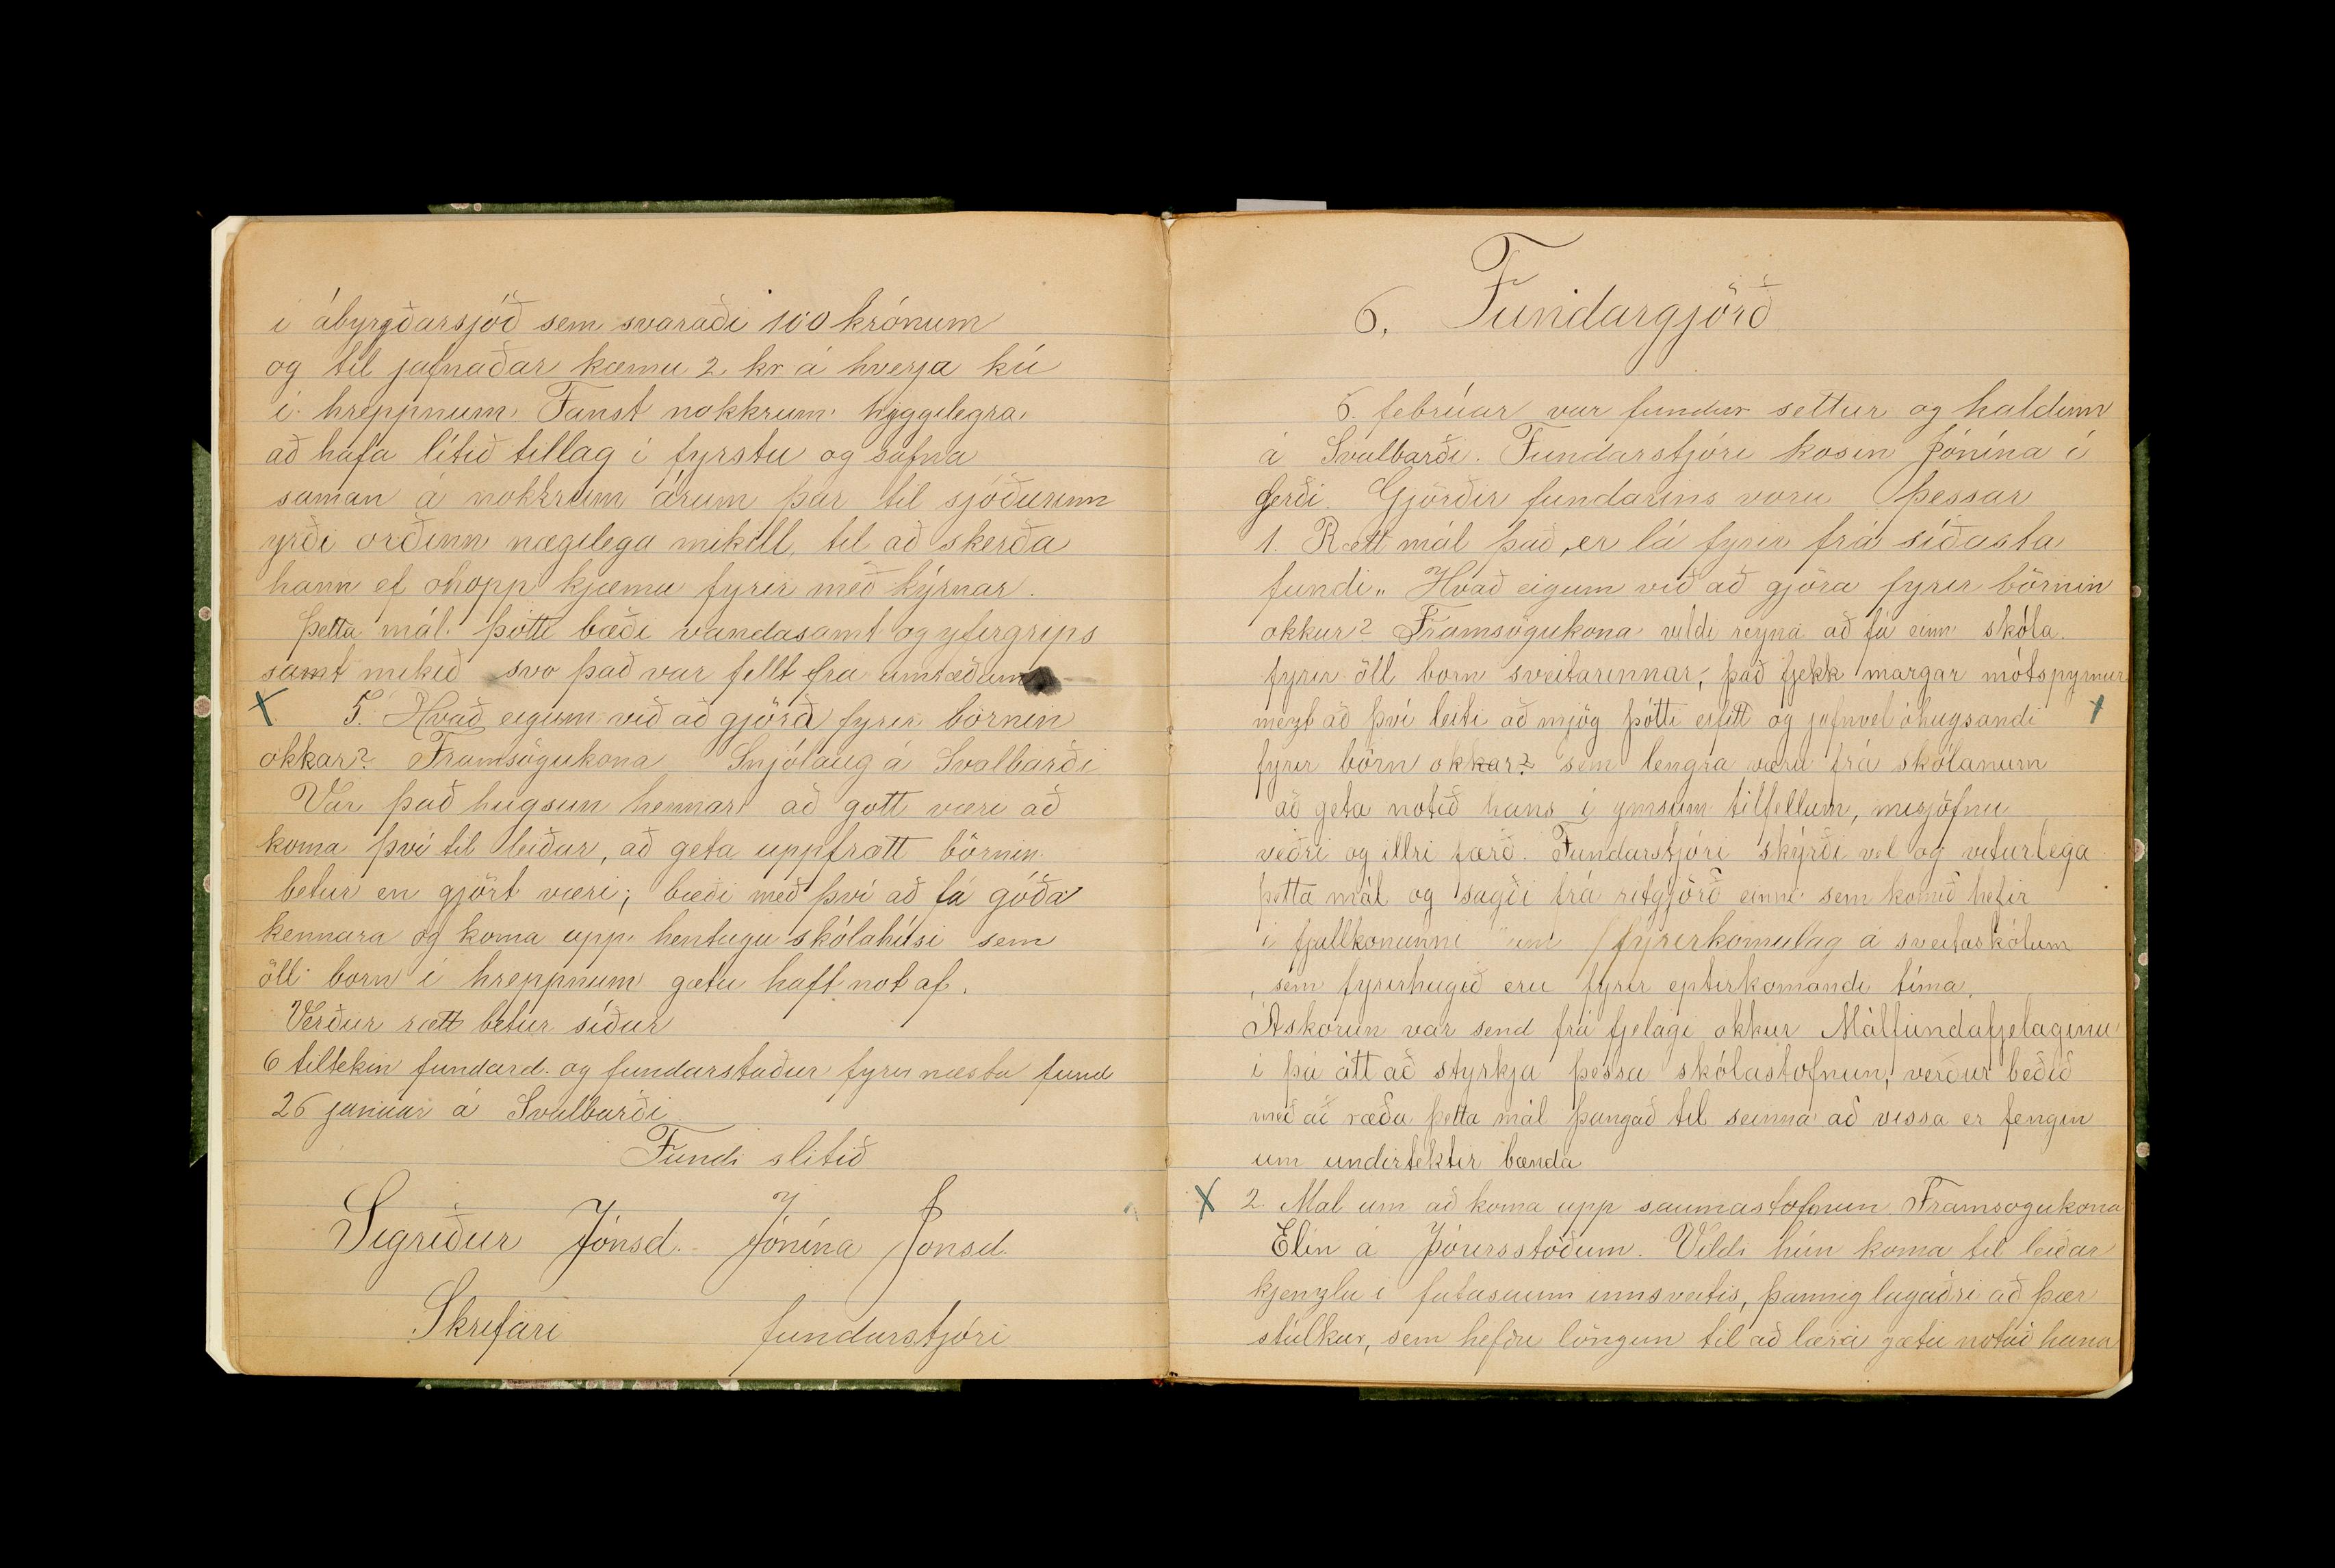 í ábyrgðarsjóð sem svaraði 100 krónum
og til jafnaðar kæmu 2 kr á hverja kú
í hreppnum. Fanst nokkrum hyggilegra
að hafa lítið tillag í fyrstu og safna
saman á nokkrum árum þar til sjóðurinn
yrði orðinn nægilega mikill, til að skerða
hann ef óhopp kjæmu fyrir með kýrnar.
Þetta mál þótti bæði vandasamt og yfirgrips
samt mikið svo það var fellt frá umræðum
x 5. Hvað eigum við að gjöra fyrir börnin
okkar? Framsögukona Snjólaug á Svalbarði
Var það hugsun hennar að gott væri að
koma því til leiðar, að geta uppfrætt börnin
betur en gjört væri; bæði með því að fá góða
kennara og koma upp hentugu skólahúsi sem
öll born í hreppnum gætu haft not af.
Verður rætt betur síðar
6 tiltekin fundard. og fundarstaður fyrir næsta fund
26 januar á Svalbarði
Fundi slitið
Sigríður Jónsd. Jónína Jónsd.
Skrifari fundarstjóri
6. Fundargjörð
6. febrúar var fundur settur og haldinn
á Svalbarði. Fundarstjóri kosin Jónína í
Gerði. Gjörðir fundarins voru þessar
1. Rætt mál það, er lá fyrir frá síðasta
fundi „ Hvað eigum við að gjöra fyrir börnin
okkur? Framsögukona vildi reyna að fá einn skóla
fyrir öll born sveitarinnar, það fjekk margar mótspyrnur
mezt að því leiti að mjög þótti erfitt og jafnvel óhugsandi x
fyrir börn okkar? sem lengra væru frá skólanum
að geta notið hans í ymsum tilfellum, misjöfnu
veðri og illri færð. Fundarstjóri skýrði vel og viturlega
þetta mál og sagði frá ritgjörð einni sem komið hefir
í fjallkonunni "um fyrirkomulag á sveitaskólum
, sem fyrirhugið eru fyrir eptirkomandi tíma.
Áskorun var send frá fjelagi okkur Málfundafjelaginu
í þá átt að styrkja þessa skólastofnun, verður beðið
með að ræða þetta mál þangað til seinna að vissa er fengin
um undirtektir bænda
x 2. Mal um að koma upp saumastofnun Framsogukona
Elín á Þórisstöðum. Vildi hún koma til leiðar
kjenzlu í fatasaum innsveitis, þannig lagaðri að þær
stúlkur, sem hefðu löngun til að læra gætu notað hana